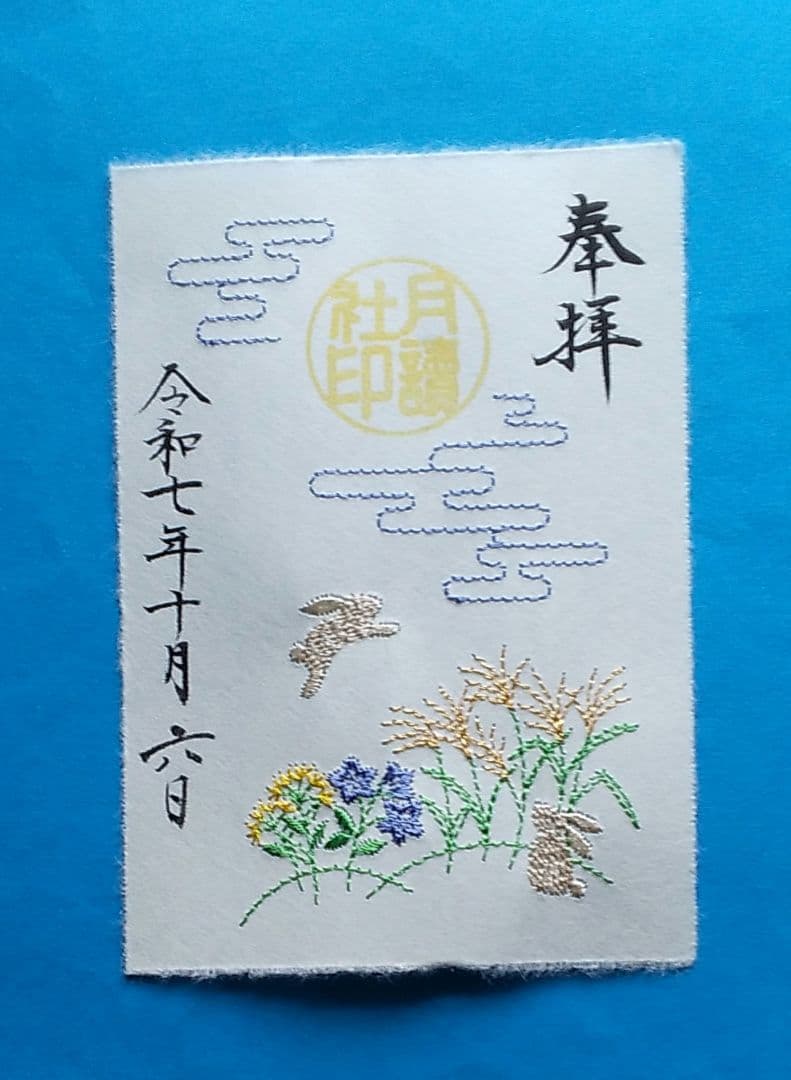 奉拝
月讀
社印
令和七年十月六日